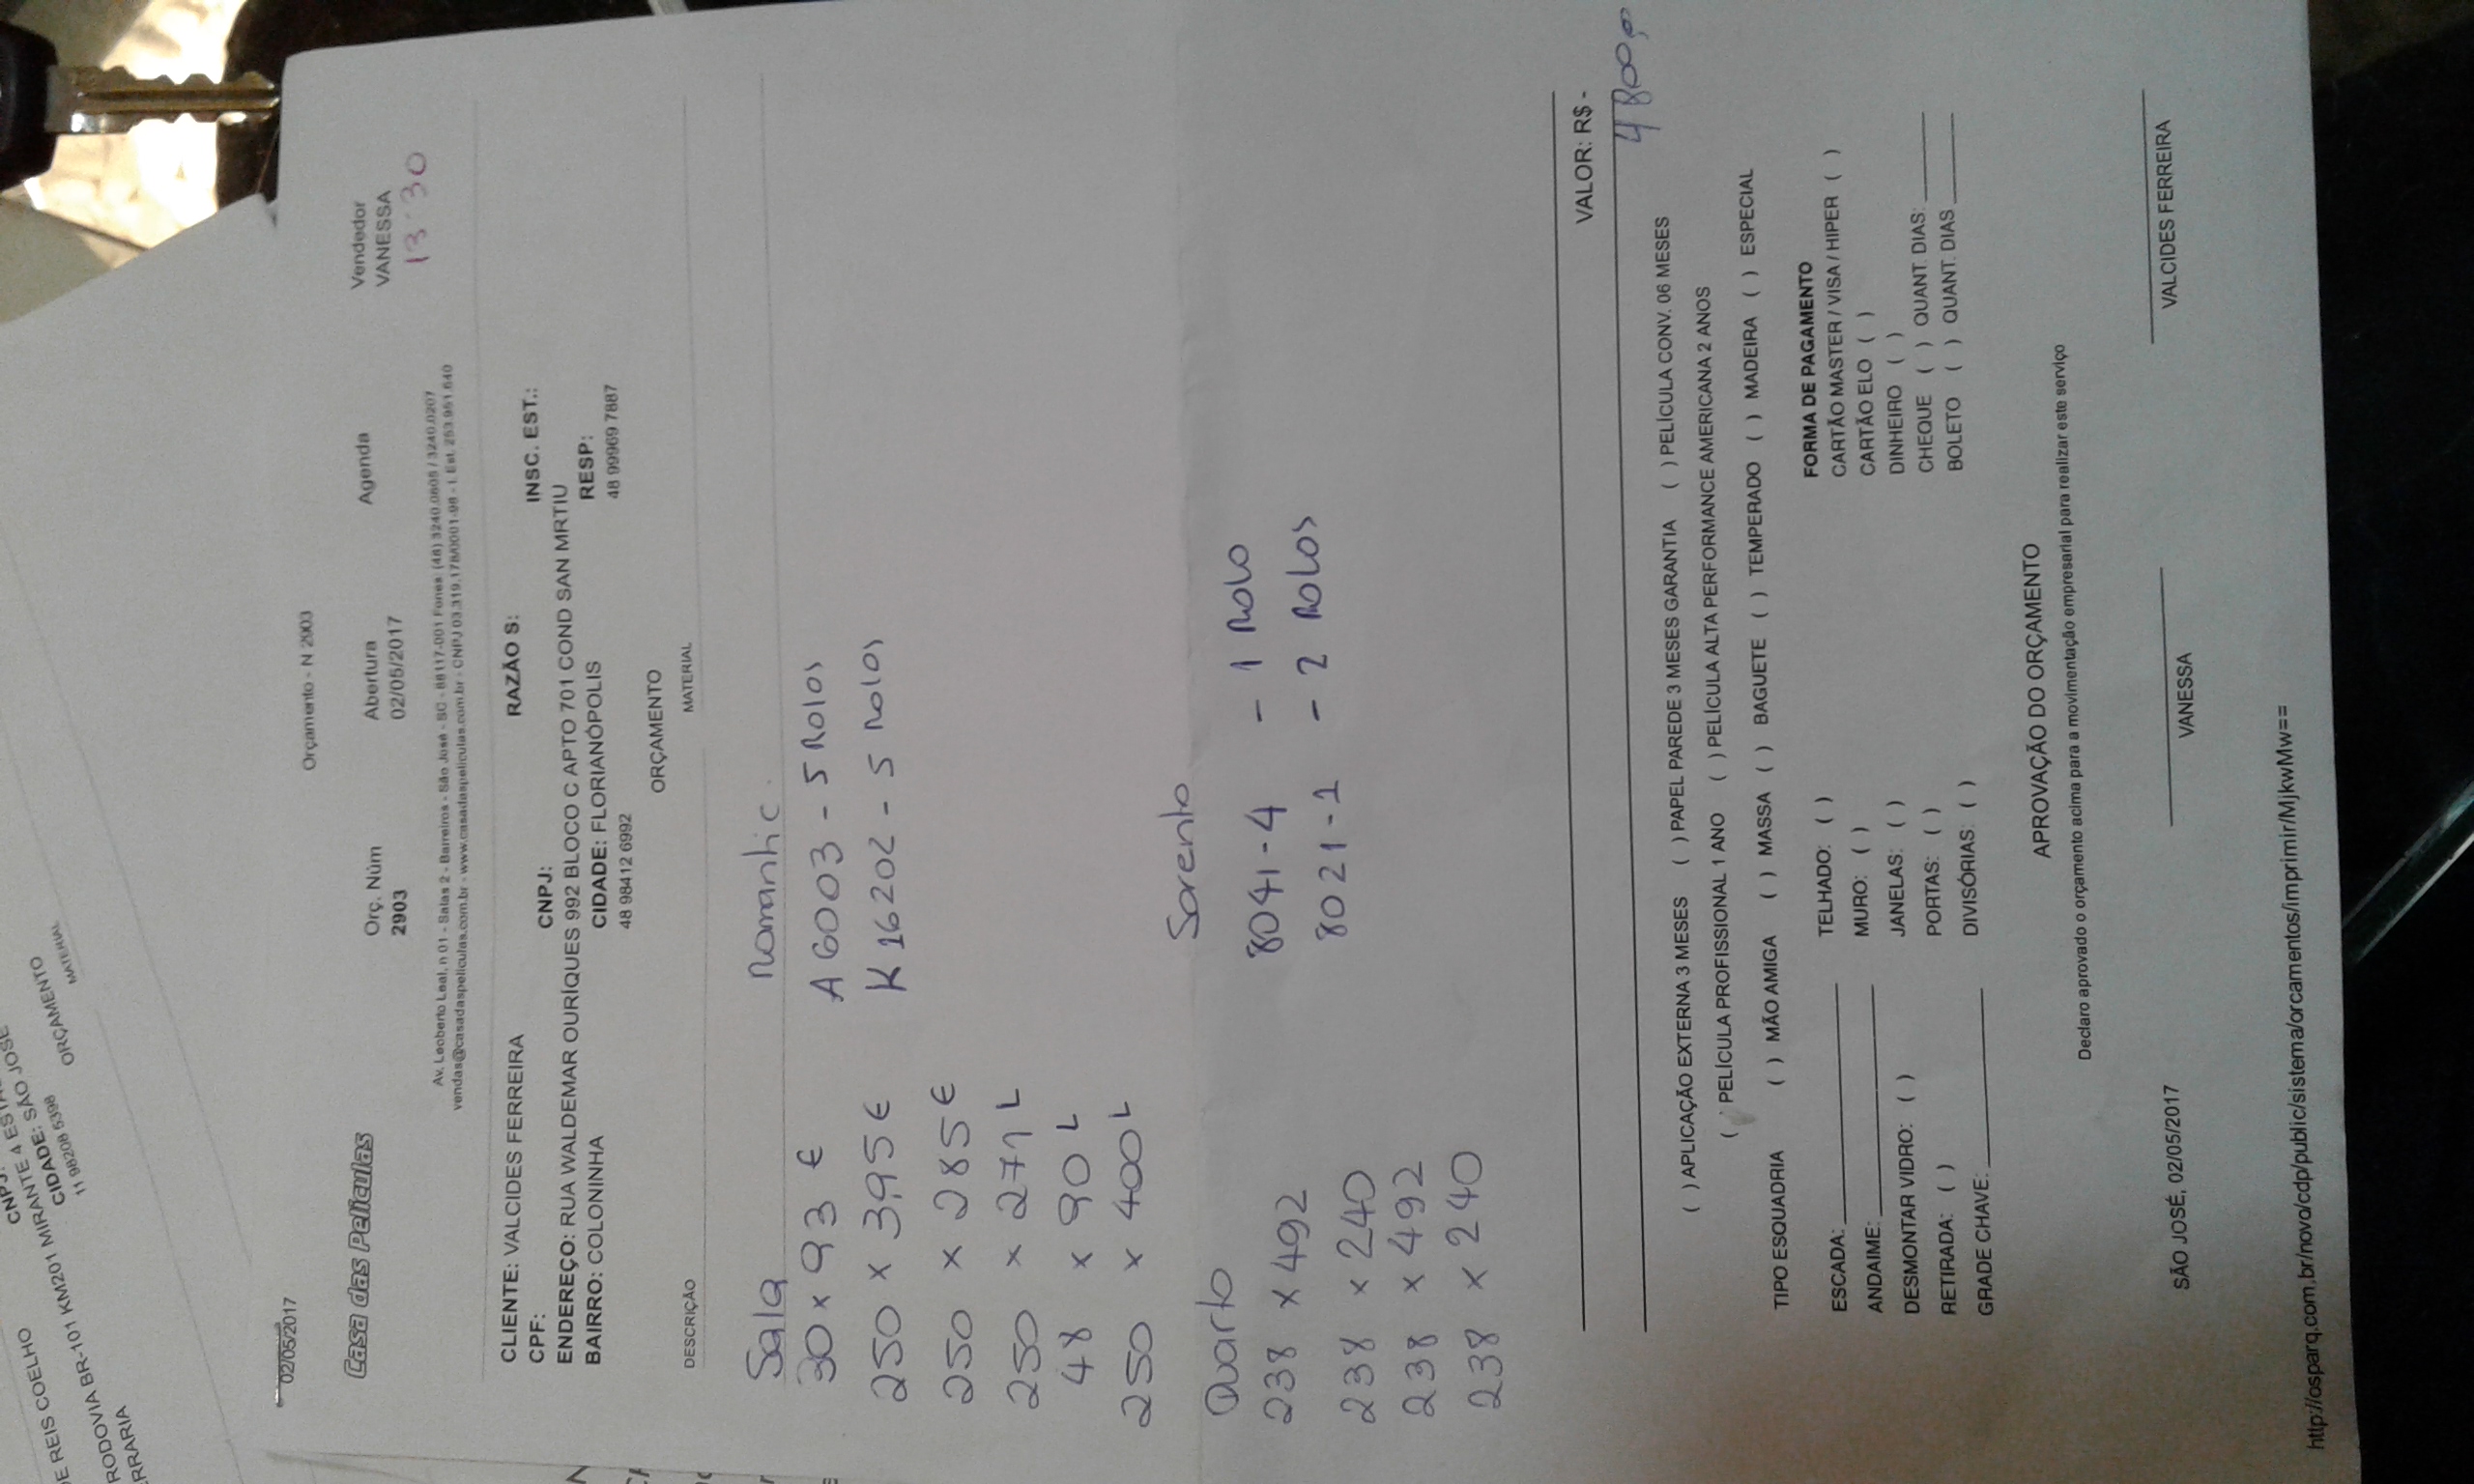 02/05/2017
Orçamento - N 2903
Casa das Películas
Orç. Núm
2903
Abertura
02/05/2017
Agenda
Vendedor
VANESSA
13:30
Av. Leoberto Leal, n 01 - Salas 2 - Barreiros - São José - SC - 88117-001 Fones (48) 3240.0808 / 3240.0207
vendas@casadaspeliculas.com.br - www.casadaspeliculas.com.br - CNPJ 03.319.178/0001-98 - I. Est. 253.951.640
CLIENTE: VALCIDES FERREIRA RAZÃO S:
CPF: CNPJ: INSC. EST.:
ENDEREÇO: RUA WALDEMAR OURÍQUES 992 BLOCO C APTO 701 COND SAN MRTIU
BAIRRO: COLONINHA CIDADE: FLORIANÓPOLIS RESP:
48 98412 6992 48 99969 7887
ORÇAMENTO
DESCRIÇÃO MATERIAL
Sala Romantic.
30 x 93 E A 6003 - 5 Rolos
250 x 395 E K 16202 - 5 Rolos
250 x 285 E
250 x 271 L
48 x 90 L
250 x 400 L
Quarto Sorento
238 x 492 8041-4 - 1 Rolo
238 x 240 8021-1 - 2 Rolos
238 x 492
238 x 240
VALOR: R$ -
4800,00
( ) APLICAÇÃO EXTERNA 3 MESES ( ) PAPEL PAREDE 3 MESES GARANTIA ( ) PELÍCULA CONV. 06 MESES
( ) PELÍCULA PROFISSIONAL 1 ANO ( ) PELÍCULA ALTA PERFORMANCE AMERICANA 2 ANOS
TIPO ESQUADRIA ( ) MÃO AMIGA ( ) MASSA ( ) BAGUETE ( ) TEMPERADO ( ) MADEIRA ( ) ESPECIAL
FORMA DE PAGAMENTO
ESCADA: TELHADO: ( ) CARTÃO MASTER / VISA / HIPER ( )
ANDAIME: MURO: ( ) CARTÃO ELO ( )
DESMONTAR VIDRO: ( ) JANELAS: ( ) DINHEIRO ( )
RETIRADA: ( ) PORTAS: ( ) CHEQUE ( ) QUANT. DIAS:
GRADE CHAVE: DIVISÓRIAS: ( ) BOLETO ( ) QUANT. DIAS
APROVAÇÃO DO ORÇAMENTO
Declaro aprovado o orçamento acima para a movimentação empresarial para realizar este serviço
SÃO JOSÉ, 02/05/2017 VANESSA VALCIDES FERREIRA
http://osparq.com.br/novo/cdp/public/sistema/orcamentos/imprimir/MjkwMw==
E REIS COELHO
RODOVIA BR-101 KM201 MIRANTE 4 ESTA
RRARIA
CNPJ:
CIDADE: SÃO JOSÉ
11 98208 5398
ORÇAMENTO
MATERIAL